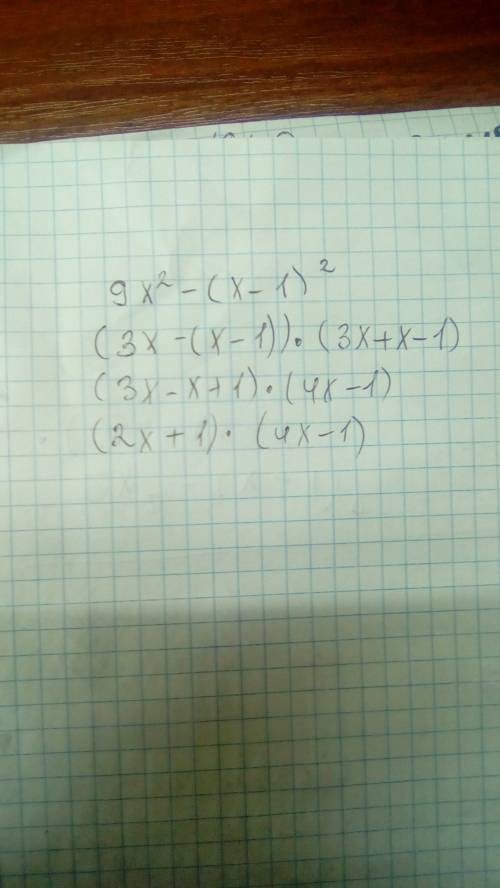 9x² - (x - 1)²
(3x - (x - 1)) · (3x + x - 1)
(3x - x + 1) · (4x - 1)
(2x + 1) · (4x - 1)